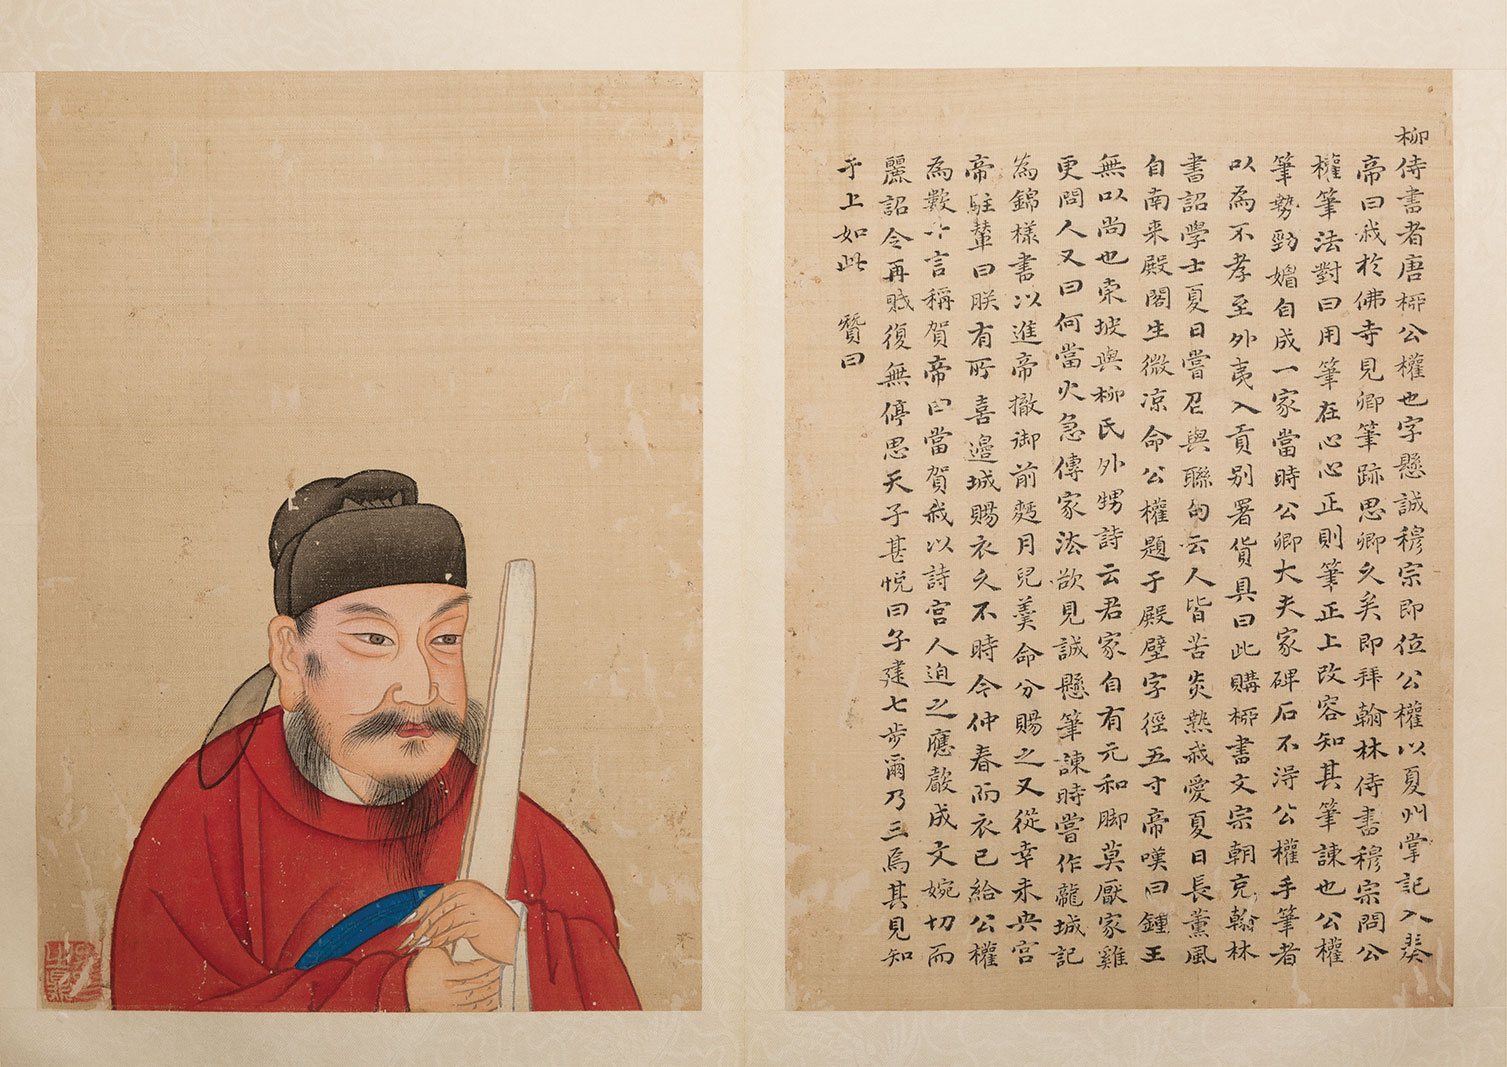 柳侍書者唐桺公權也字懸誠穆宗即位公權以夏州掌記入奏
帝曰我於佛寺見卿筆跡思卿久矣即拜翰林侍書穆宗問公
權筆法對曰用筆在心心正則筆正上改容知其筆諫也公權
筆勢勁媚自成一家當時公卿大夫家碑石不得公權手筆者
以為不孝至外夷入貢别署貨具曰此購桺書文宗朝充翰林
書詔學士夏日嘗召與聯句云人皆苦炎熱我愛夏日長薰風
自南来殿閣生微凉命公權題于殿壁字徑五寸帝嘆曰鍾王
無以尚也東坡與柳氏外甥詩云君家自有元和脚莫厭家雞
更問人又曰何當火急傳家法欲見誠懸筆諫時嘗作龍城記
為錦樣書以進帝撤御前麫月兒羹命分賜之又從幸未央宫
帝駐輦曰朕有所喜邊城賜衣久不時今仲春而衣已給公權
為數十言稱賀帝曰當賀我以詩宫人迫之應聲成文婉切而
麗詔令再賦復無停思天子甚悦曰子建七步爾乃三焉其見知
于上如此 贊曰